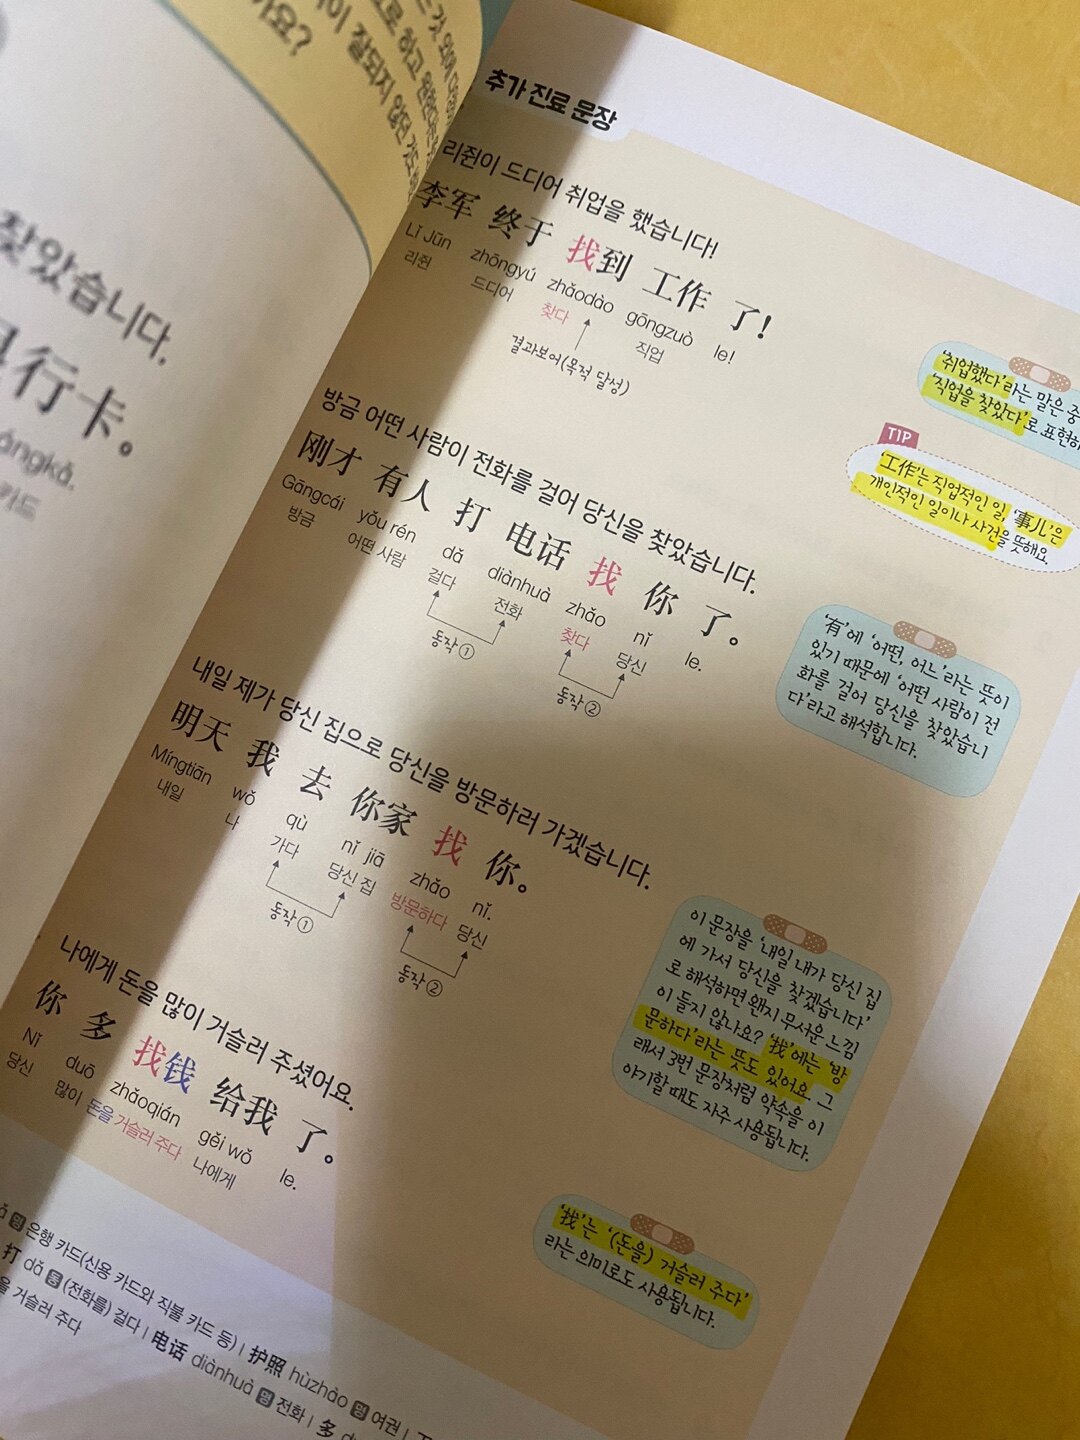 찾았습니다.
行卡。
ángkǎ.
카드
추가 진료 문장
리쥔이 드디어 취업을 했습니다!
李军 终于 找到 工作 了!
Lǐ Jūn zhōngyú zhǎodào gōngzuò le!
리쥔 드디어 찾다 직업
결과보어(목적 달성)
'취업했다'라는 말은 중
'직업을 찾았다'로 표현하
TIP
'工作'는 직업적인 일, '事儿'은
개인적인 일이나 사건을 뜻해요.
방금 어떤 사람이 전화를 걸어 당신을 찾았습니다.
刚才 有人 打 电话 找 你 了。
Gāngcái yǒu rén dǎ diànhuà zhǎo nǐ le.
방금 어떤 사람 걸다 전화 찾다 당신
동작① 동작②
'有'에 '어떤, 어느'라는 뜻이
있기 때문에 '어떤 사람이 전
화를 걸어 당신을 찾았습니
다'라고 해석합니다.
내일 제가 당신 집으로 당신을 방문하러 가겠습니다.
明天 我 去 你家 找 你。
Míngtiān wǒ qù nǐ jiā zhǎo nǐ.
내일 나 가다 당신 집 방문하다 당신
동작① 동작②
이 문장을 '내일 내가 당신 집
에 가서 당신을 찾겠습니다'
로 해석하면 왠지 무서운 느낌
이 들지 않나요? '找'에는 '방
문하다'라는 뜻도 있어요. 그
래서 3번 문장처럼 약속을 이
야기할 때도 자주 사용됩니다.
나에게 돈을 많이 거슬러 주셨어요.
你 多 找钱 给我 了。
Nǐ duō zhǎoqián gěi wǒ le.
당신 많이 돈을 거슬러 주다 나에게
'找'는 '(돈을) 거슬러 주다'
라는 의미로도 사용됩니다.
명 은행 카드(신용 카드와 직불 카드 등) | 护照 hùzhào 명 여권 |
打 dǎ 동 (전화를) 걸다 | 电话 diànhuà 명 전화 | 多
을 거슬러 주다